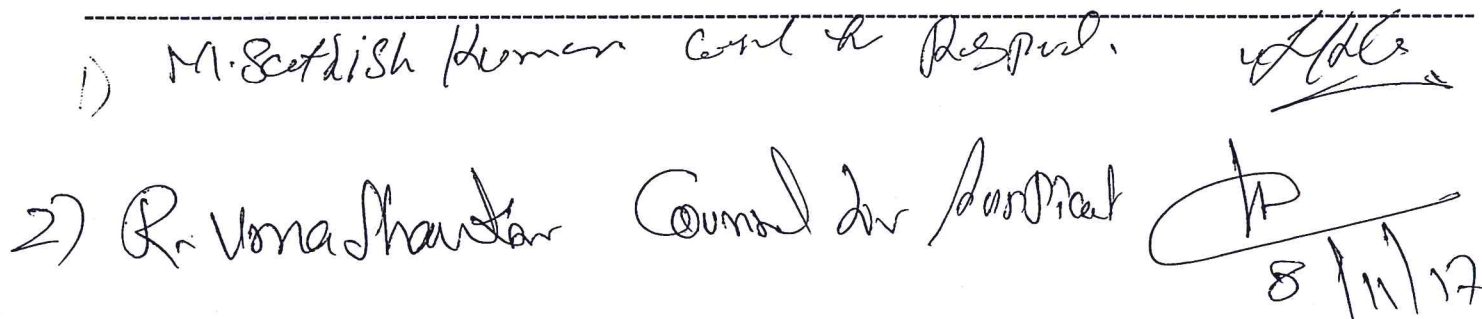 1) M. Sathish Kumar Counsel for Respond.
2) R. Umashankar Counsel for Applicant
8/11/17